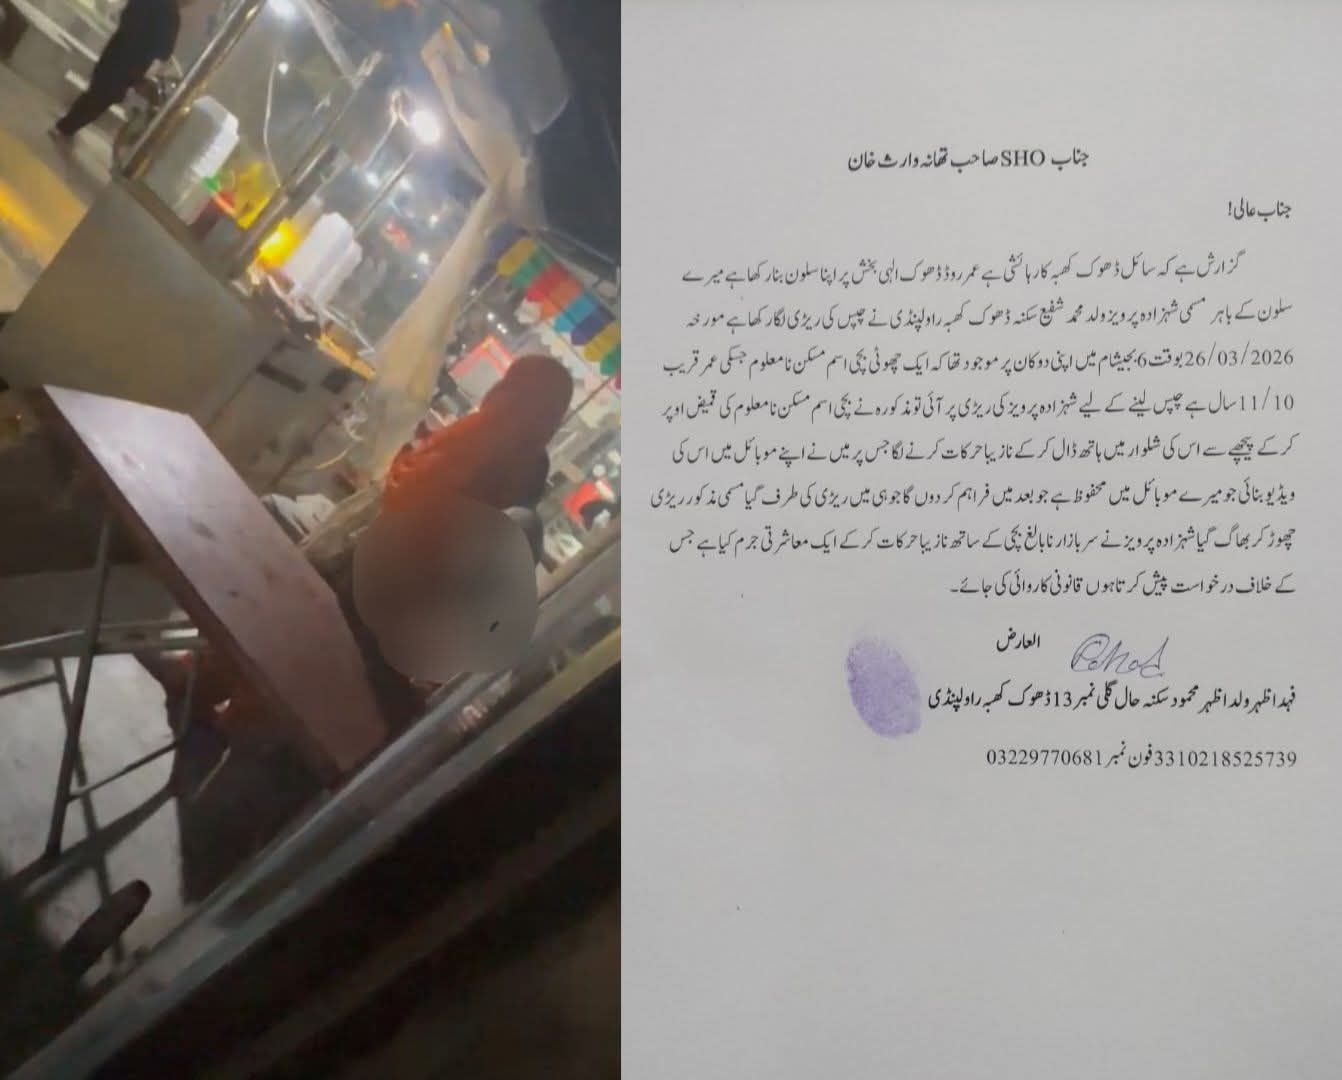 جناب SHO صاحب تھانہ وارث خان
جناب عالی!
گزارش ہے کہ سائل ڈھوک کھبہ کا رہائشی ہے عمر روڈ ڈھوک الٰہی بخش پر اپنا سلون بنا رکھا ہے میرے
سلون کے باہر مسمی شہزادہ پرویز ولد محمد شفیع سکنہ ڈھوک کھبہ راولپنڈی نے چپس کی ریڑی لگا رکھا ہے مورخہ
26/03/2026 بوقت 6 بجیشام میں اپنی دوکان پر موجود تھا کہ ایک چھوٹی بچی اسم مسکن نامعلوم جسکی عمر قریب
11/10 سال ہے چپس لینے کے لیے شہزادہ پرویز کی ریڑی پر آئی تو مذکورہ نے بچی اسم مسکن نامعلوم کی قمیض اوپر
کر کے پیچھے سے اس کی شلوار میں ہاتھ ڈال کر کے نازیبا حرکات کرنے لگا جس پر میں نے اپنے موبائل میں اس کی
ویڈیو بنائی جو میرے موبائل میں محفوظ ہے جو بعد میں فراہم کر دوں گا جو ہی میں ریڑی کی طرف گیا مسمی مذکور ریڑی
چھوڑ کر بھاگ گیا شہزادہ پرویز نے سر بازار نابالغ بچی کے ساتھ نازیبا حرکات کر کے ایک معاشرتی جرم کیا ہے جس
کے خلاف درخواست پیش کرتا ہوں قانونی کاروائی کی جائے۔
العارض
فہد اظہر ولد اظہر محمود سکنہ حال گلی نمبر 13 ڈھوک کھبہ راولپنڈی
3310218525739 فون نمبر 03229770681